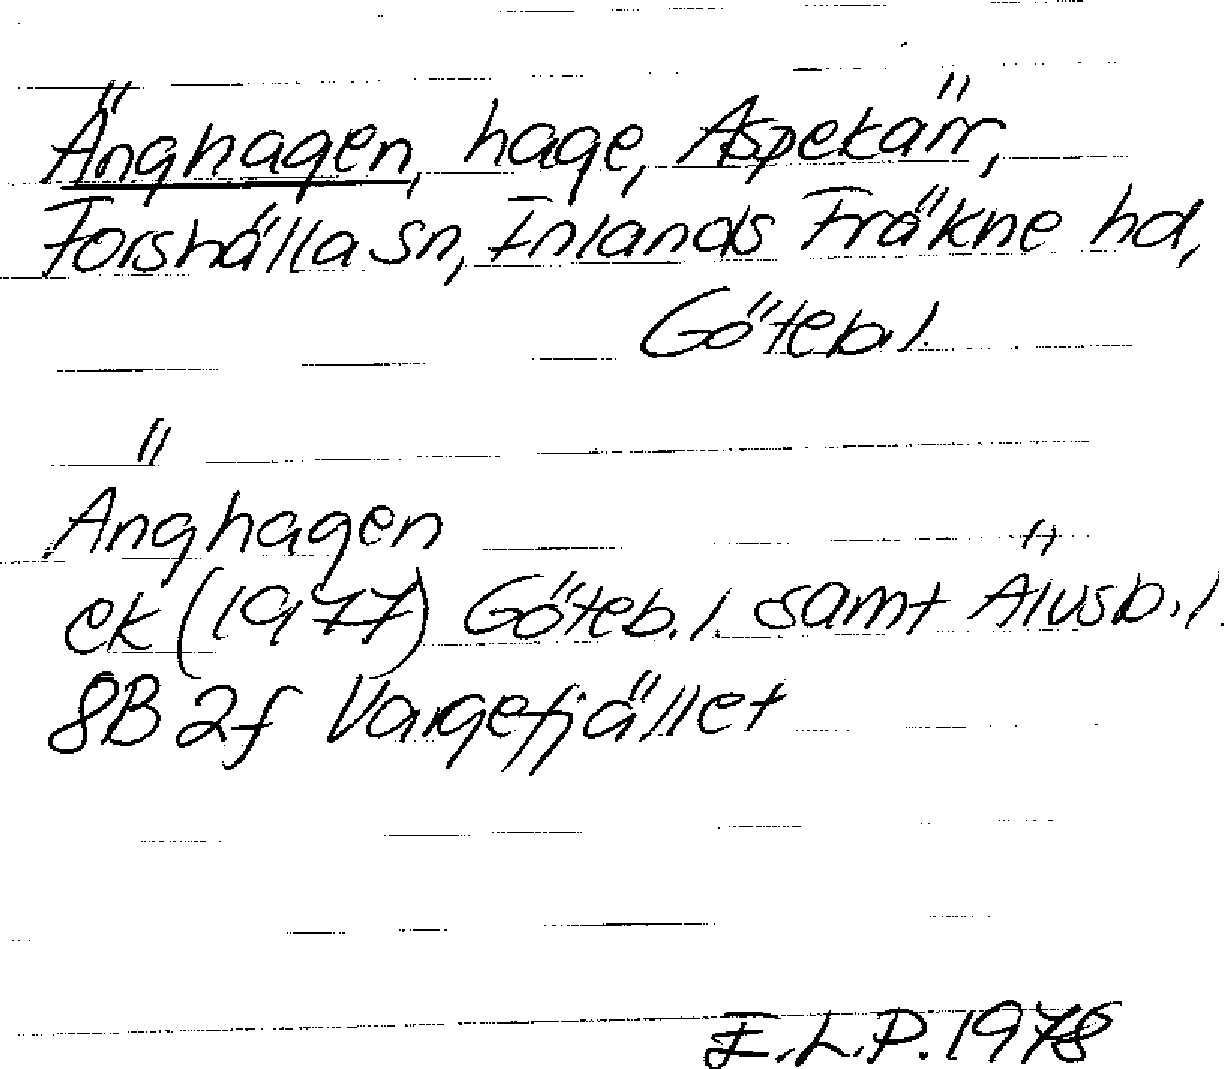 Änghagen, hage, Aspekärr,
Forshälla sn, Inlands Fräkne hd,
Göteb.l.
Änghagen
ek (1977) Göteb.l. samt Älvsb.l.
8B 2f Vargefjället
I.L.P. 1978